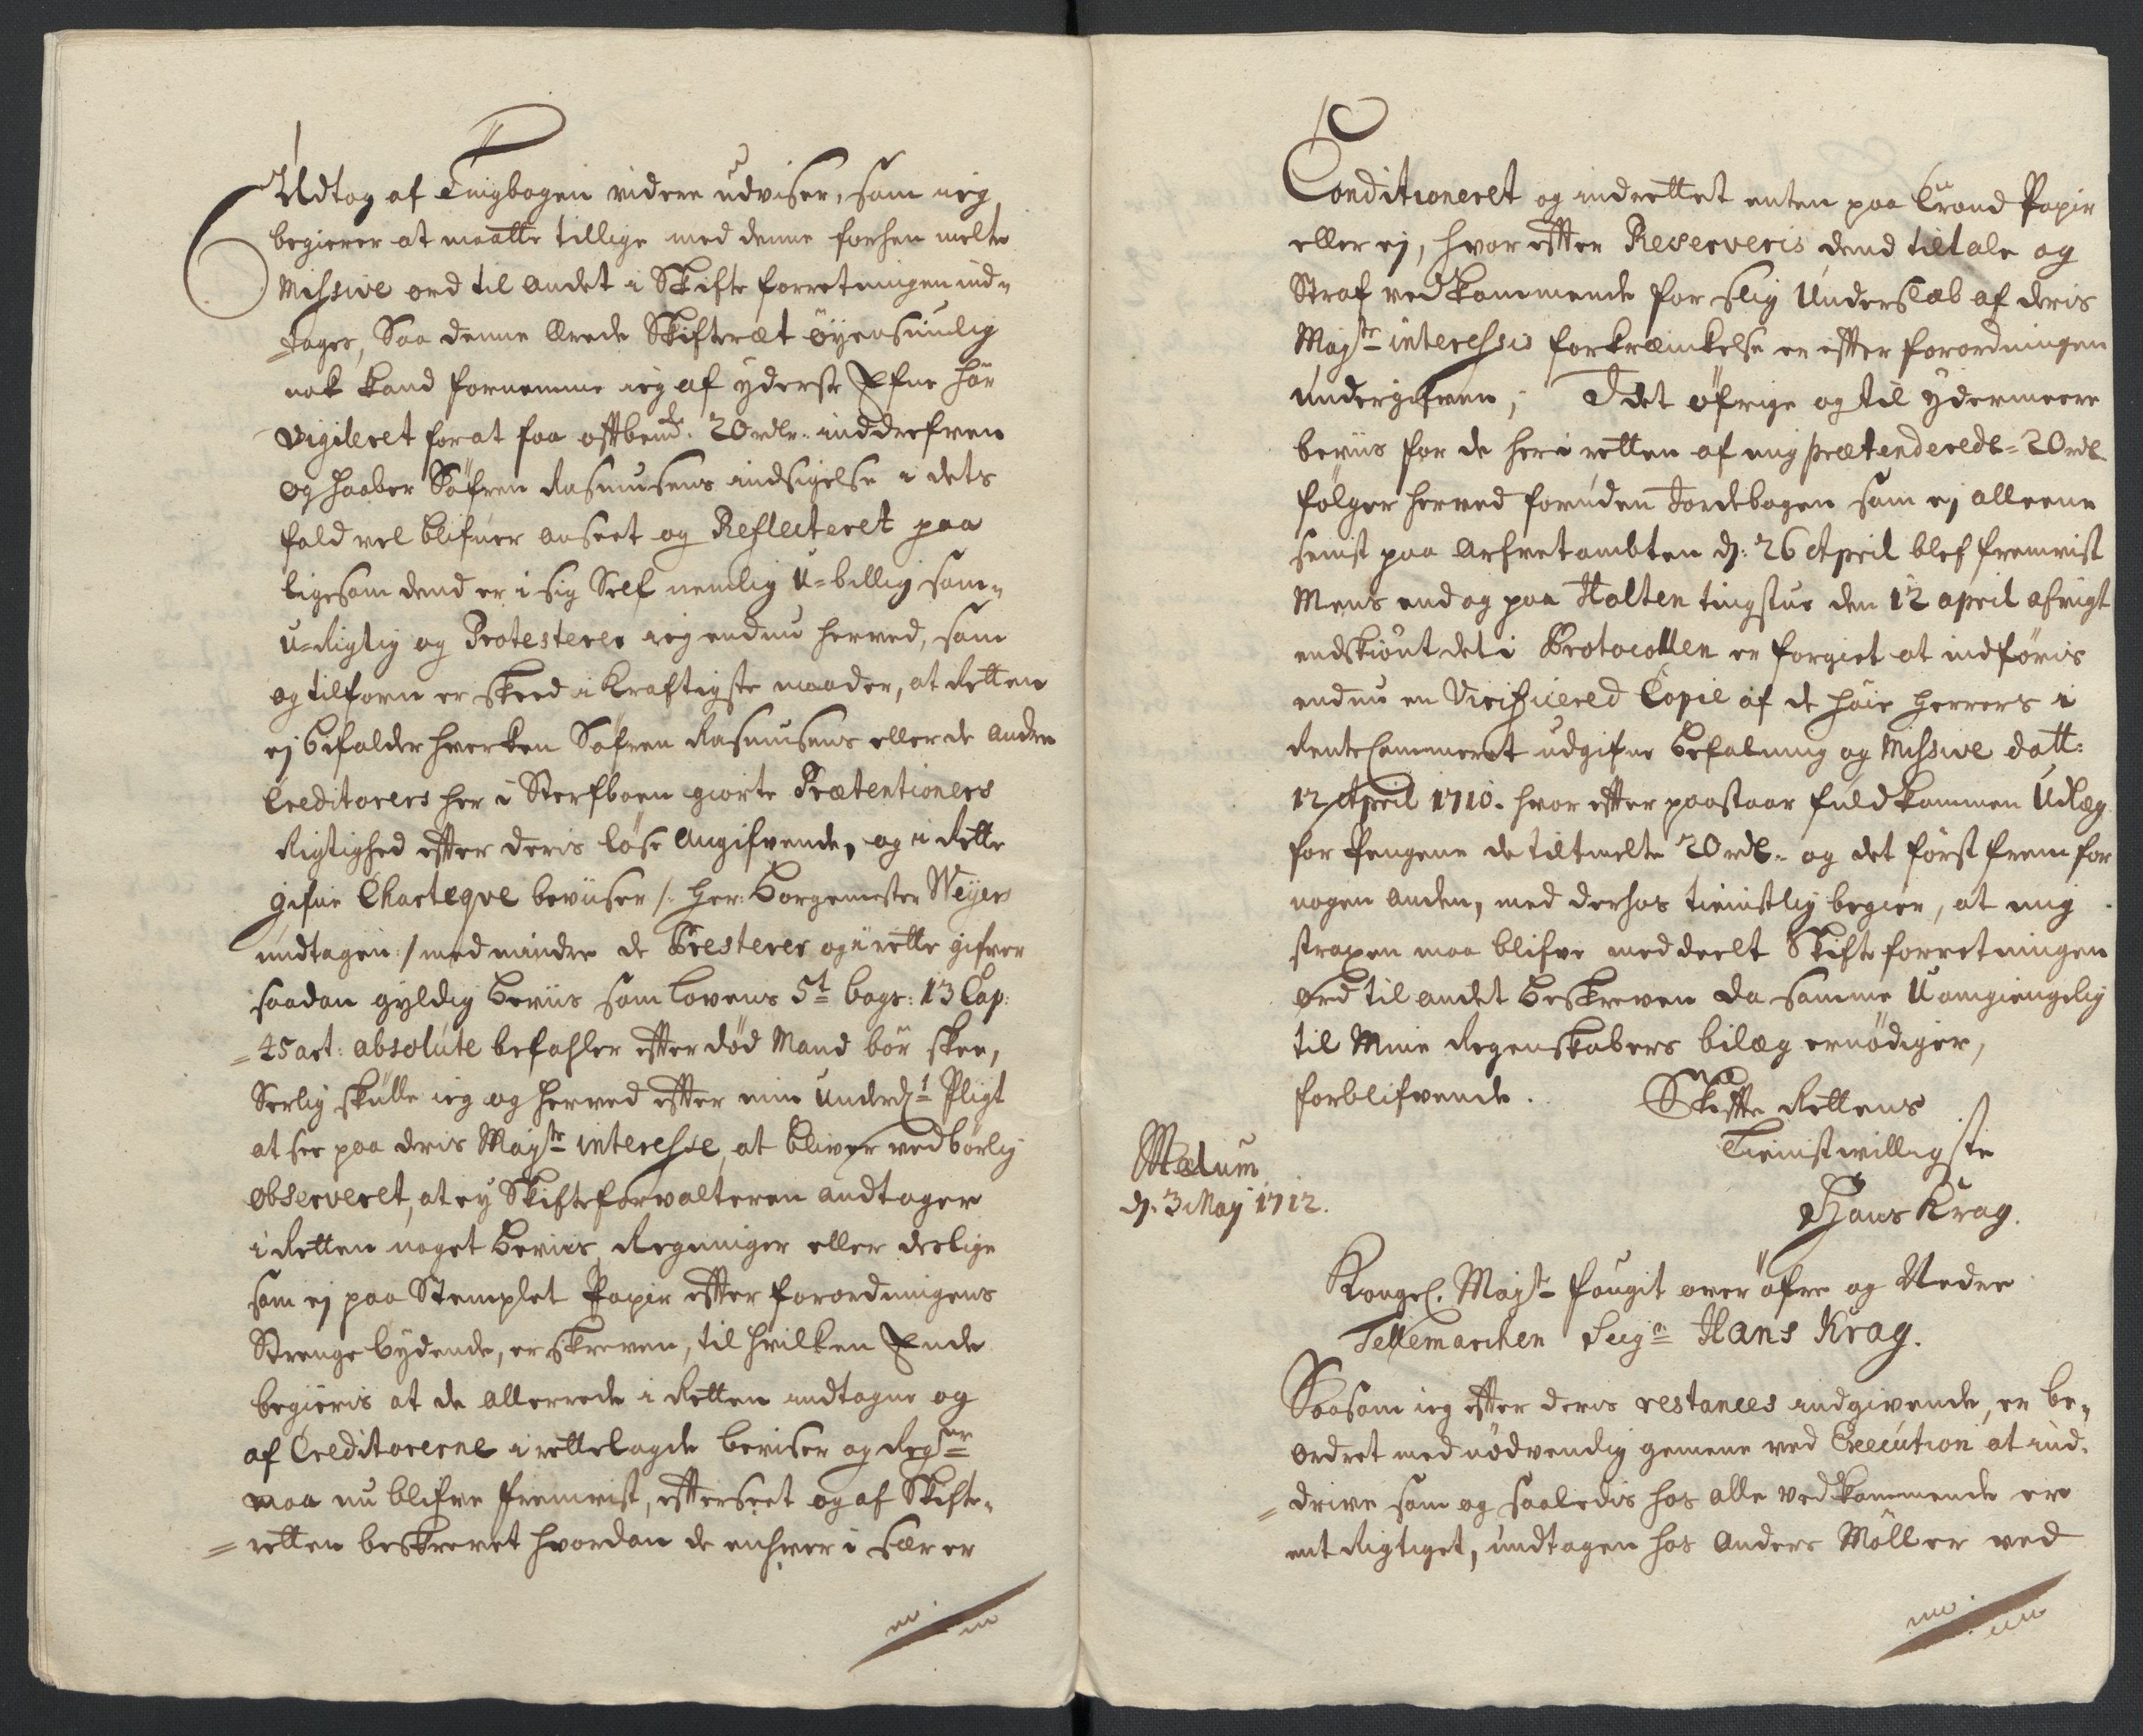 Udtog af Tingbogen videre udviser, som ieg
begierer at maatte tillige med denne forhen melte
Missive ord til andet i Skifte forretningen ind-
tages, Saa denne ærede Skifteræt øyensiunlig
nok kand fornemme ieg af yderste Efne har
Vigileret for at faa oftbemd. 20 rdlr. inddrefven
og haaber Söfren Rasmusens indsigelse i dets
fald vel blifuer anseet og Reflecteret paa
ligesom dend er i sig Self nemlig U-billig som
U-Rigtig og Protesterer ieg endnu herved, som
og tilforn er skeed i kraftigste maader, at Retten
ej bifalder hverken Söfren Rasmusens eller de andre
Creditorers her i Sterfboen giorte Prætentioners
Rigtighed efter deris løse angifvende, og i Rette
gifne Charteqve beviiser /: Her: Borgemester Weyers
undtagen :/ med mindre de Presterer og i rette gifver
saadan gyldig beviis som Lovens 5t bogs: 13 Cap:
45 art: absolute befahler efter død Mand bør skee,
Serlig skulle ieg og herved efter min underd. Pligt
at see paa deris Mayts interesse, at bliver vedbörlig
observeret, at ey Skifteforvalteren andtager
i Retten noget beviis, Regninger eller deslige
som ej paa Stemplet Papir efter forordningens
Strenge bydende, er skreven, til hvilken Ende
begieris at de allerrede i Retten andtagne og
af Creditorerne i rettelagde beviser og Regser
maa nu blifve fremvist, efterseet og af Skifte-
retten beskrevet hvordan de enhver i sær er
Conditioneret og indrettet enten paa Crond Papir
eller ej, hvor efter Reserveris dend tiltale og
Straf vedkommende for slig Underslæb af deris
Mayts interesses forkrænkelse er efter forordningen
undergifven; I det øfrige og til ydermeere
beviis for de her i retten af mig prætenderede 20 rdl.
følger herved foruden Jordebogen som ej alleene
senist paa Arfvetombten d: 26 April blef fremvist
Mens endog paa Holten tingstue den 12 april afvigt
endskiönt det i Protocollen er forgiet at indføris
endnu en Vicificered Copie af de høie Herrers i
RenteCammeret udgifne befalning og Missive datt:
12 April 1710. hvor efter paastaar fuldkommen Udlæg
for Pengene de tiltmelte 20 rdl. og det först frem for
nogen anden, med derhos tienistlig begier, at mig
straxen maa blifve meddeelt Skifte forretningen
ord til andet beskreven da samme Uomgiengelig
til Mine Regenskabers bilæg ernödiger,
forblifvende. Skifte Rettens
Tienistvilligste
Mælum
d. 3 May 1712.
Hans Krag.
Kongel. Mayts fougit over öfre og Nedre
Tellemarchen Seigr Hans Krag.
Saasom ieg efter deris restances indgivende, er be-
ordret med nödvendig gemene ved Execution at ind-
drive som og saaledis hos alle vedkommende er
ent Rigtiget, undtagen hos Anders Möller ved